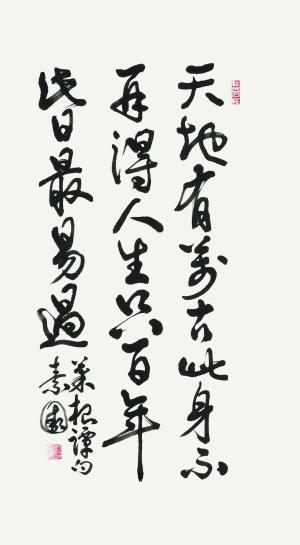 天地有萬古此身不
再得人生只百年
此日最易過
菜根譚句
素園